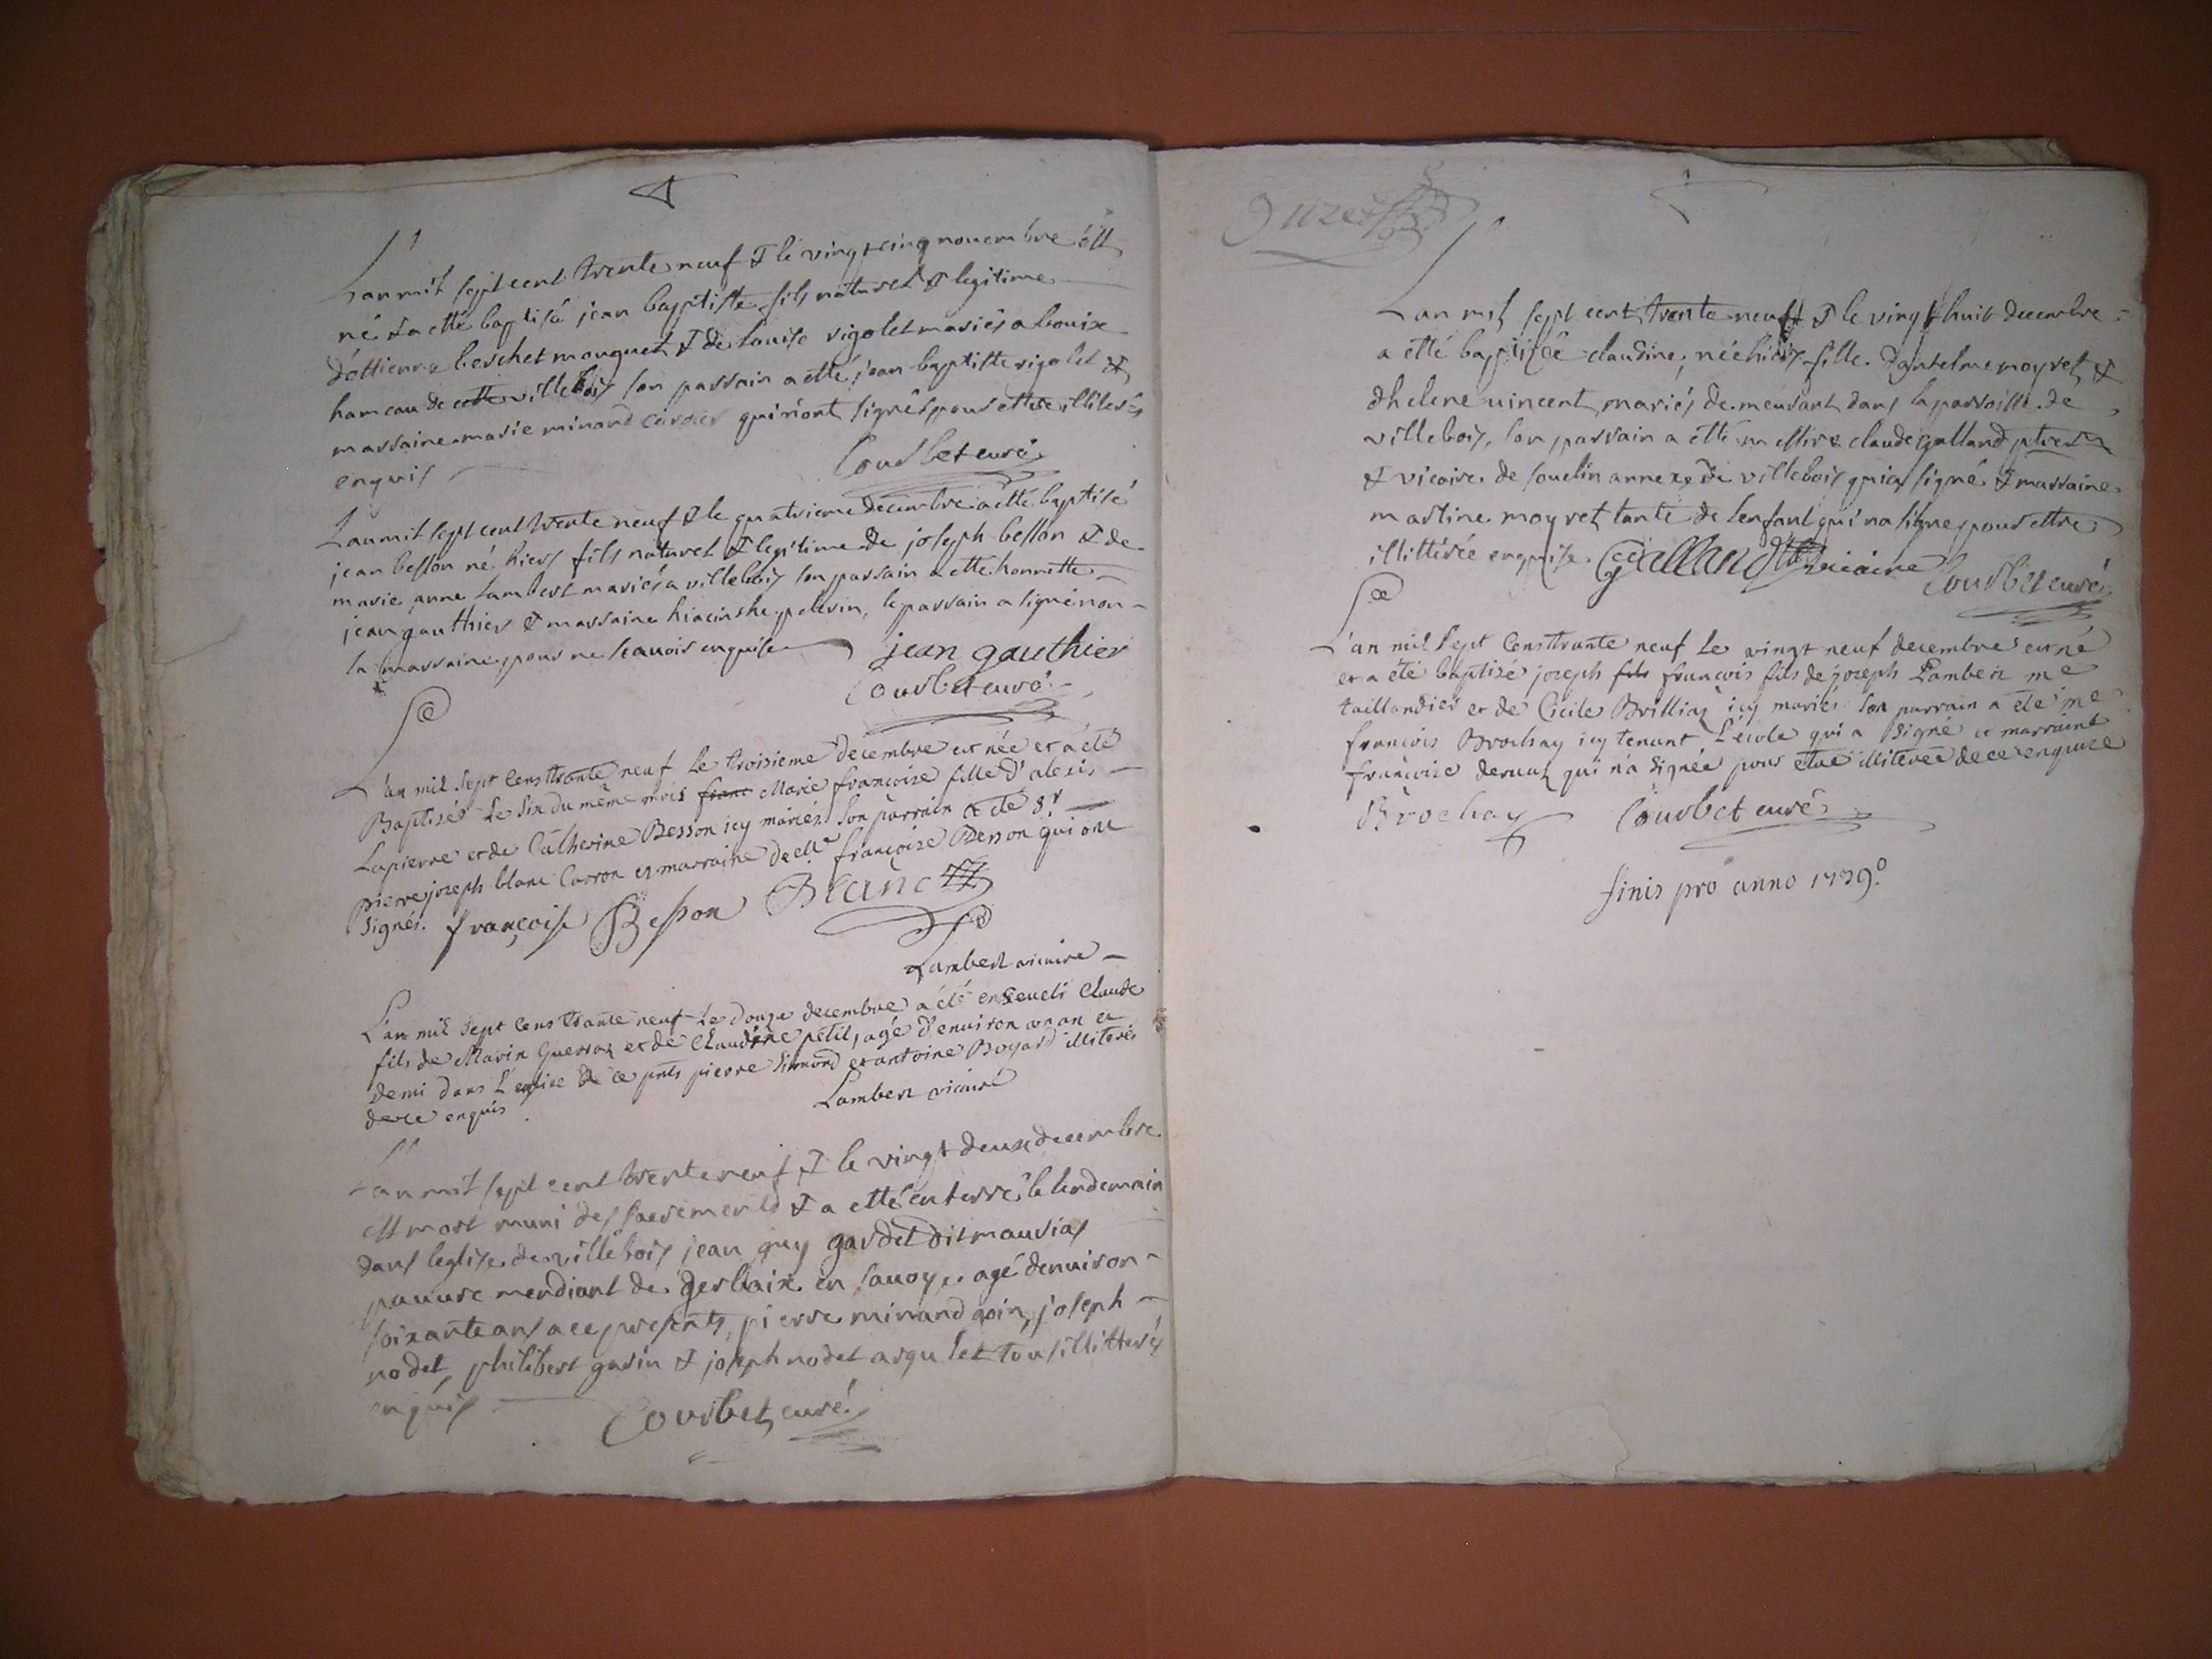 Lan mil sept cent trente neuf & le vingt cinq nouembre est
né & a etté baptisé jean baptiste fils naturel & legitime
d'ettienne berchet monguet & de louise rigolet mariés a bouix
hameau de cette villebois son parrain a etté jean baptiste rigolet &
marraine marie minand cordier qui n'ont signés pour ettre illiterés
enquis
Courbet curé
Lan mil sept cent trente neuf & le quatrieme decembre a etté baptisé
jean besson né hiers fils naturel & legitime de joseph besson & de
marie anne lambert mariés a villebois son parrain a etté honnette
jean gauthier & marraine hiacinthe pelerin, le parrain a signé non
la marraine pour ne scauoir enquise
jean gauthier
Courbet curé
L'an mil sept cens trante neuf Le troisieme decembre est née et a été
Baptisée Le six du même mois franc Marie françoise fille d'alexis
Lapierre et de Catherine Besson icy mariés. Son parrain a été Sr
pierre joseph blanc Carron et marraine delle françoise Besson qui ont
signés. françoise Besson Blanc
Lambert vicaire
L'an mil sept cens trante neuf Le douze decembre a été enseueli Claude
fils de Marin Guerraz et de Claudine petit, agé d'enuiron un an et
demi dans L'eglise de ce pnts pierre Simond et antoine Bogard illiterés
de ce enquis
Lambert vicaire
Lan mil sept cent trente neuf & le vingt deux decembre
est mort muni des sacrements & a etté enterré le lendemain
dans leglise de villebois jean guy gardet dit maurias
pauure mendiant de gerbaix en sauoye agé denuiron
soixante ans a ce presents, pierre minand goin, joseph
nodet, philibert garin & joseph nodet arqulet tous illitterés
enquis
Courbet curé
onze
Lan mil sept cent trente neuf & le vingt huit decembre
a etté baptisée claudine, née hiers fille dantelme moyret &
dhelene uincent mariés demeurant dans la parroisse de
villebois, son parrain a etté messire claude galland ptre
& vicaire de souclin annexe de villebois qui a signé & marraine
martine moyret tante de lenfant qui na signe pour ettre
illittérée enquise. Galland vicaire
Courbet curé
L'an mil sept cens trante neuf Le vingt neuf decembre est né
et a été baptizé joseph fils françois fils de joseph Lambert me
taillandier et de Cicile Brilliaz icy mariés son parrain a été me
françois Brochay icy tenant L'école qui a signé et marraine
françoise deruaz qui n'a signée pour etre illiterée de ce enquise
Brochay Courbet curé
finis pro anno 1739o.